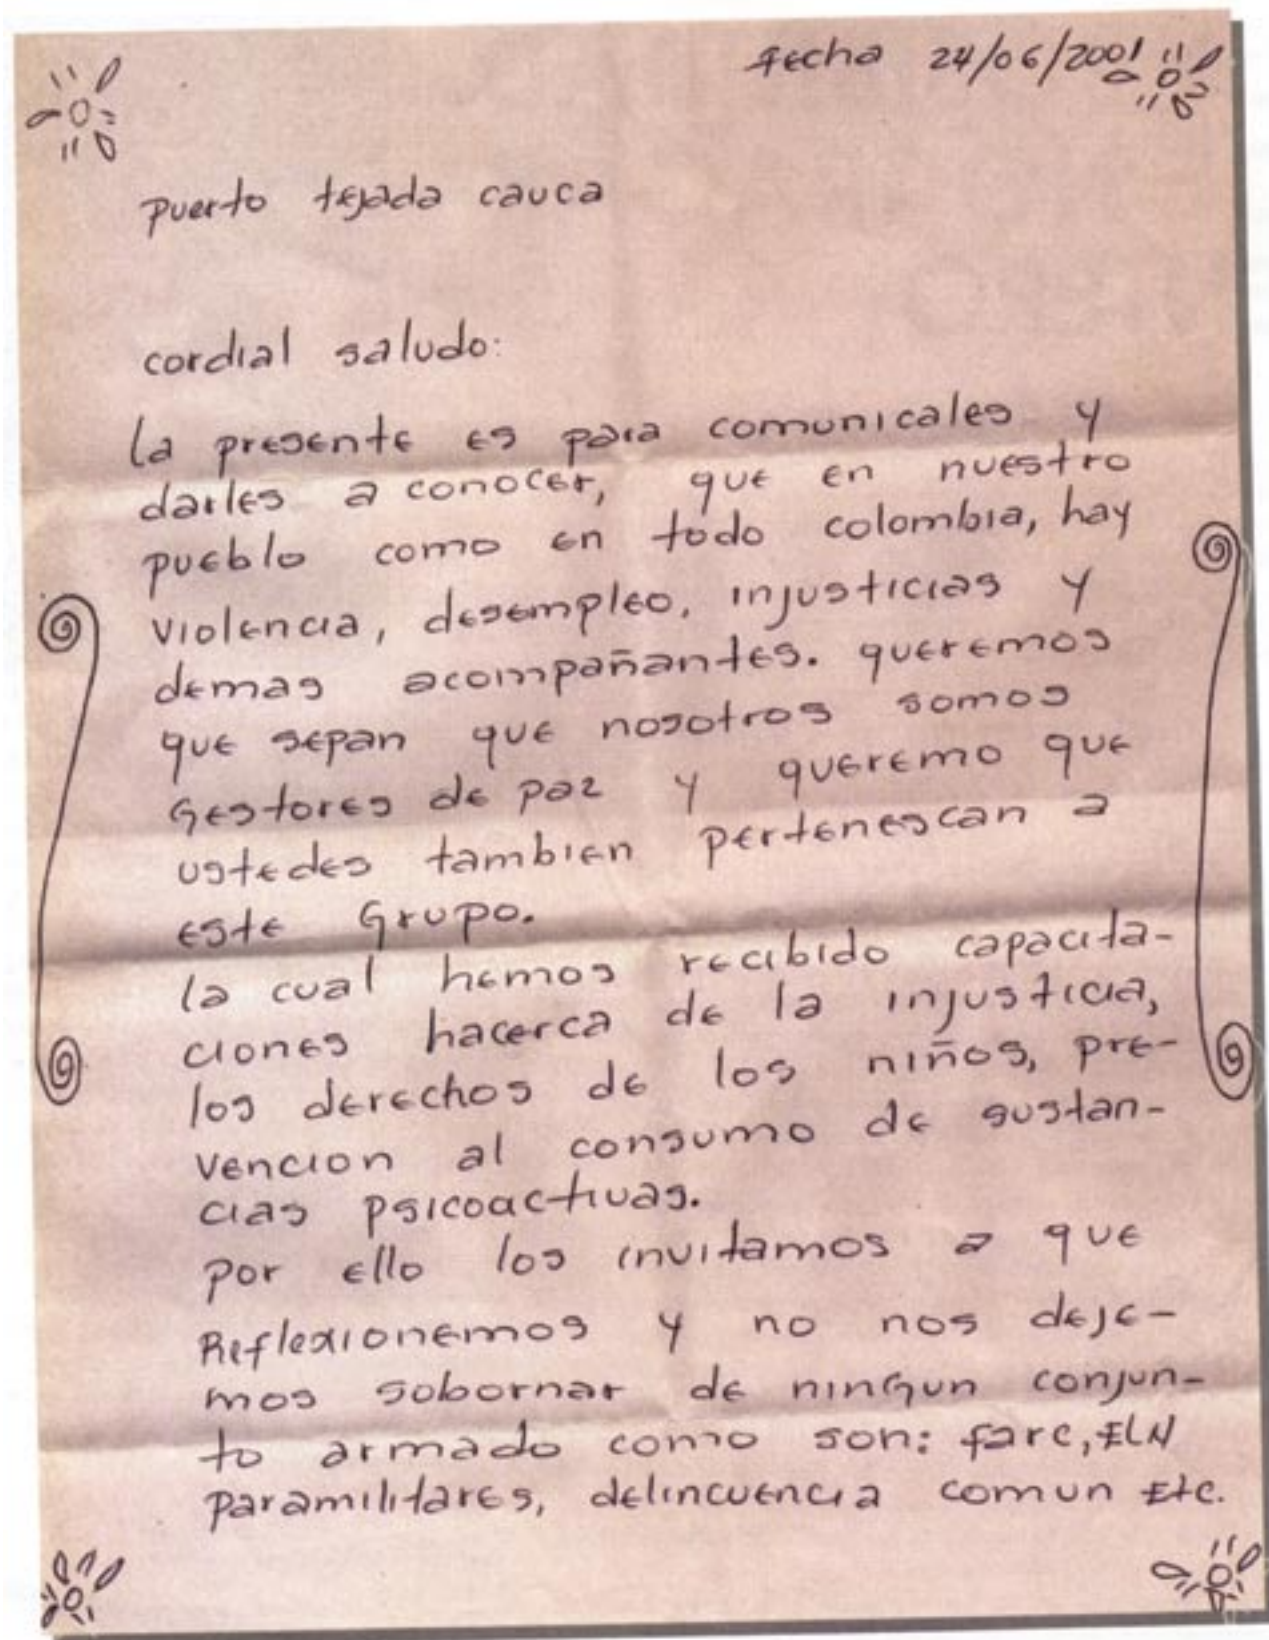 fecha 24/06/2001
puerto tejada cauca
cordial saludo:
la presente es para comunicales y
darles a conocer, que en nuestro
pueblo como en todo colombia, hay
violencia, desempleo, injusticias y
demas acompañantes. queremos
que sepan que nosotros somos
Gestores de paz y queremo que
ustedes tambien pertenescan a
este Grupo.
la cual hemos recibido capacita-
ciones hacerca de la injusticia,
los derechos de los niños, pre-
vencion al consumo de sustan-
cias psicoactivas.
por ello los invitamos a que
Reflexionemos y no nos deje-
mos sobornar de ninGun conjun-
to armado como son: farc, ELN
paramilitares, delincuencia comun Etc.